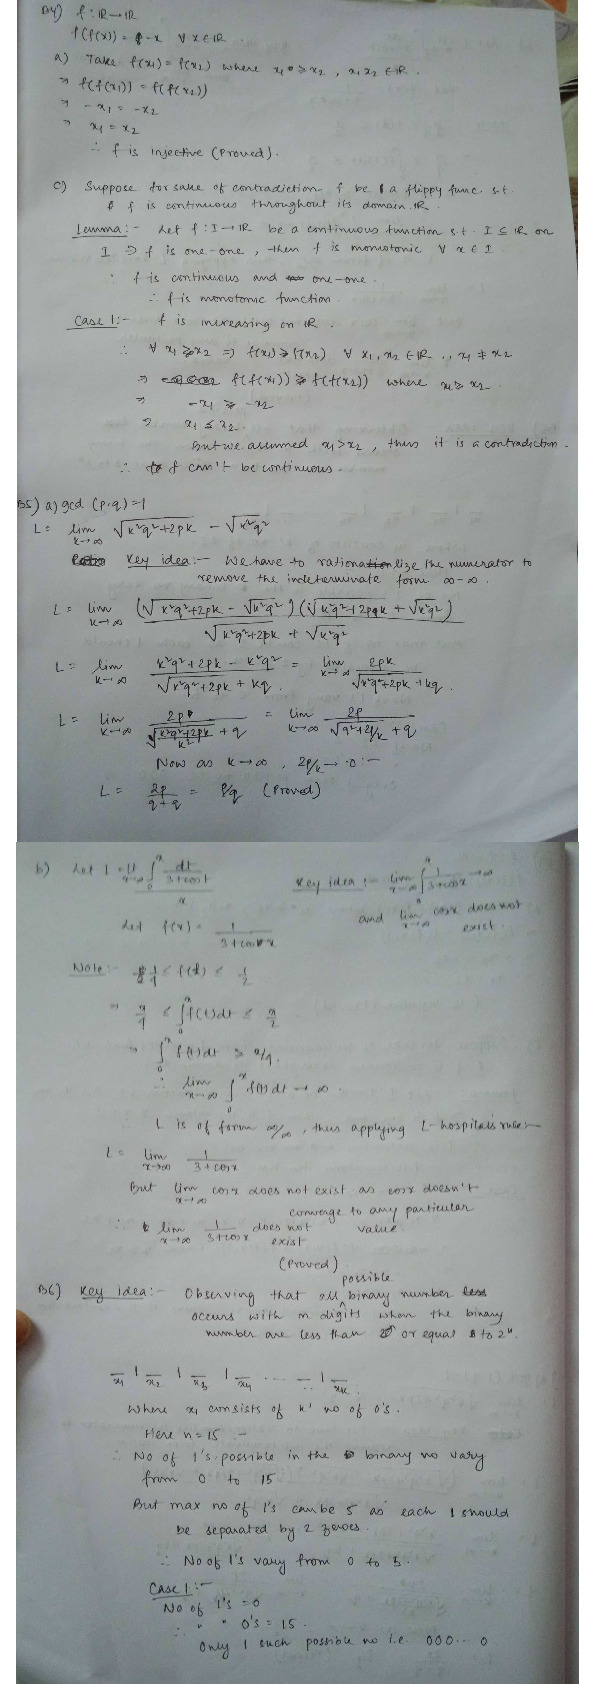 B4) f : ℝ → ℝ
f(f(x)) = -x ∀ x ∈ ℝ.
a) Take f(x₁) = f(x₂) where x₁ ≥ x₂, x₁ x₂ ∈ ℝ.
⇒ f(f(x₁)) = f(f(x₂))
⇒ -x₁ = -x₂
⇒ x₁ = x₂
∴ f is injective (Proved).
c) Suppose for sake of contradiction f be a flippy func. s.t.
f is continuous throughout its domain ℝ.
Lemma:- Let f : I → ℝ be a continuous function s.t. I ⊆ ℝ on
I ⇒ f is one-one, then f is monotonic ∀ x ∈ I.
∵ f is continuous and one-one.
∴ f is monotonic function.
Case 1:- f is increasing on ℝ.
∴ ∀ x₁ ≥ x₂ ⇒ f(x₁) ≥ f(x₂) ∀ x₁, x₂ ∈ ℝ., x₁ ≠ x₂
⇒ f(f(x₁)) ≥ f(f(x₂)) where x₁ ≥ x₂.
⇒ -x₁ ≥ -x₂
⇒ x₁ ≤ x₂.
But we assumed x₁ > x₂, thus it is a contradiction.
∴ f can't be continuous.
B5) a) gcd (p,q) = 1
L = lim k→∞ √(k²q²+2pk) - √(k²q²)
Key idea:- We have to rationalize the numerator to
remove the indeterminate form ∞-∞.
L = lim k→∞ (√(k²q²+2pk) - √(k²q²))(√(k²q²+2pk) + √(k²q²)) / (√(k²q²+2pk) + √(k²q²))
L = lim k→∞ (k²q²+2pk - k²q²) / (√(k²q²+2pk) + kq) = lim k→∞ 2pk / (√(k²q²+2pk) + kq)
L = lim k→∞ 2p / (√((k²q²+2pk)/k²) + q) = lim k→∞ 2p / (√(q²+2p/k) + q)
Now as k→∞, 2p/k → 0 :-
L = 2p/(q+q) = p/q (Proved)
b) Let L = lt x→∞ (∫₀ˣ dt/(3+cost)) / x Key idea:- lim x→∞ ∫₀ˣ 1/(3+cosx) → ∞
and lim x→∞ cosx does not
exist.
Let f(x) = 1/(3+cosx)
Note:- 1/4 ≤ f(t) ≤ 1/2
⇒ x/4 ≤ ∫₀ˣ f(t)dt ≤ x/2
⇒ ∫₀ˣ f(t)dt ≥ x/4.
∴ lim x→∞ ∫₀ˣ f(t)dt → ∞.
L is of form ∞/∞, thus applying L-hospital's rule:-
L = lim x→∞ 1/(3+cosx)
But lim x→∞ cosx does not exist as cosx doesn't
converge to any particular
value.
∴ lim x→∞ 1/(3+cosx) does not
exist
(Proved)
B6) Key Idea:- Observing that all possible binary number
occurs with n digits when the binary
number are less than or equal to 2ⁿ.
x₁ 1 x₂ 1 x₃ 1 x₄ ... 1 xₖ
Where x₁ consists of k' no of 0's.
Here n = 15 :-
∴ No of 1's possible in the binary no vary
from 0 to 15
But max no of 1's can be 5 as each 1 should
be separated by 2 zeroes.
∴ No of 1's vary from 0 to 5.
Case 1:-
No of 1's = 0
∴ " " 0's = 15.
Only 1 such possible no i.e. 000... 0